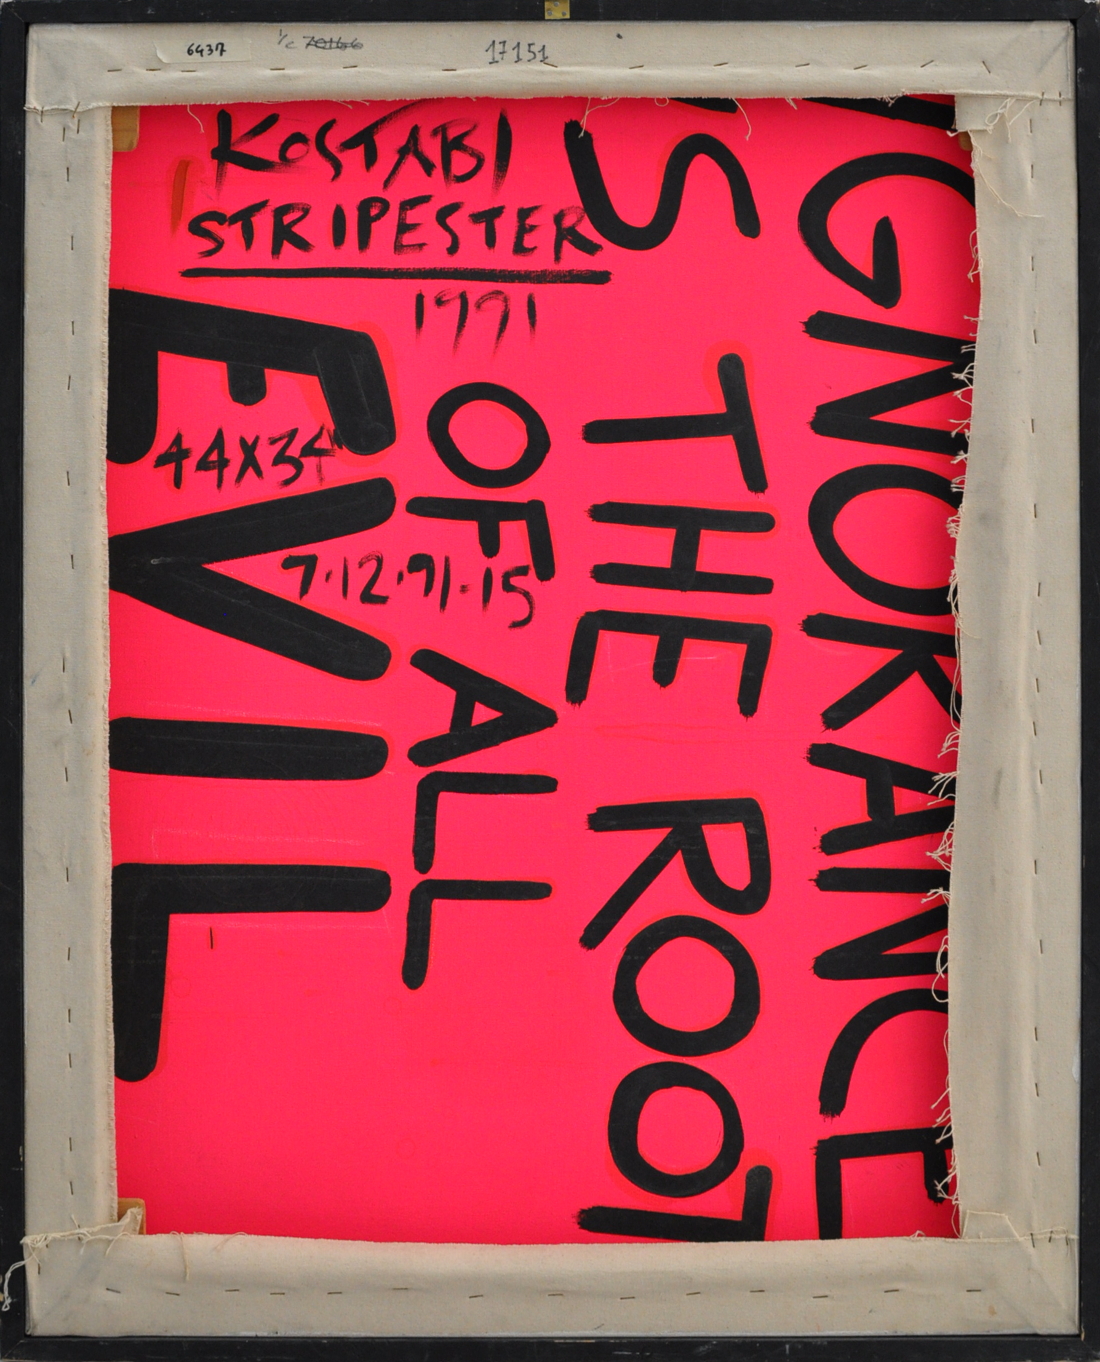 6437
1/c 70166
17151
KOSTABI
STRIPESTER
1991
44X34"
7·12·91·15
IGNORANCE
IS THE ROOT
OF ALL
EVIL